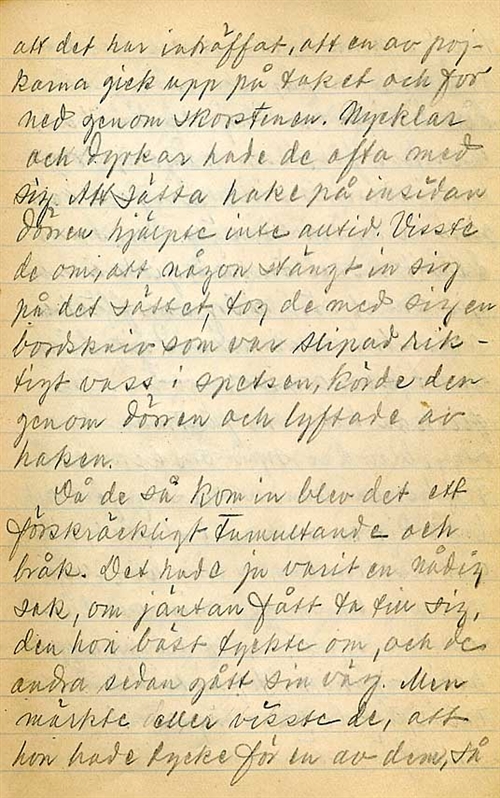 att det har inträffat, att en av poj-
karna gick upp på taket och for
ned genom skorstenen. Nycklar
och dyrkar hade de ofta med
sig. Att sätta hake på insidan
dörren hjälpte inte alltid. Visste
de om, att någon stängt in sig
på det sättet, tog de med sig en
bordskniv som var slipad rik-
tigt vass i spetsen, körde den
genom dörren och lyftade av
haken.
Då de så kom in blev det ett
förskräckligt tumultande och
bråk. Det hade ju varit en nådig
sak, om jäntan fått ta till sig,
den hon bäst tyckte om, och de
andra sedan gått sin väg. Men
märkte eller visste de, att
hon hade tycke för en av dem, så